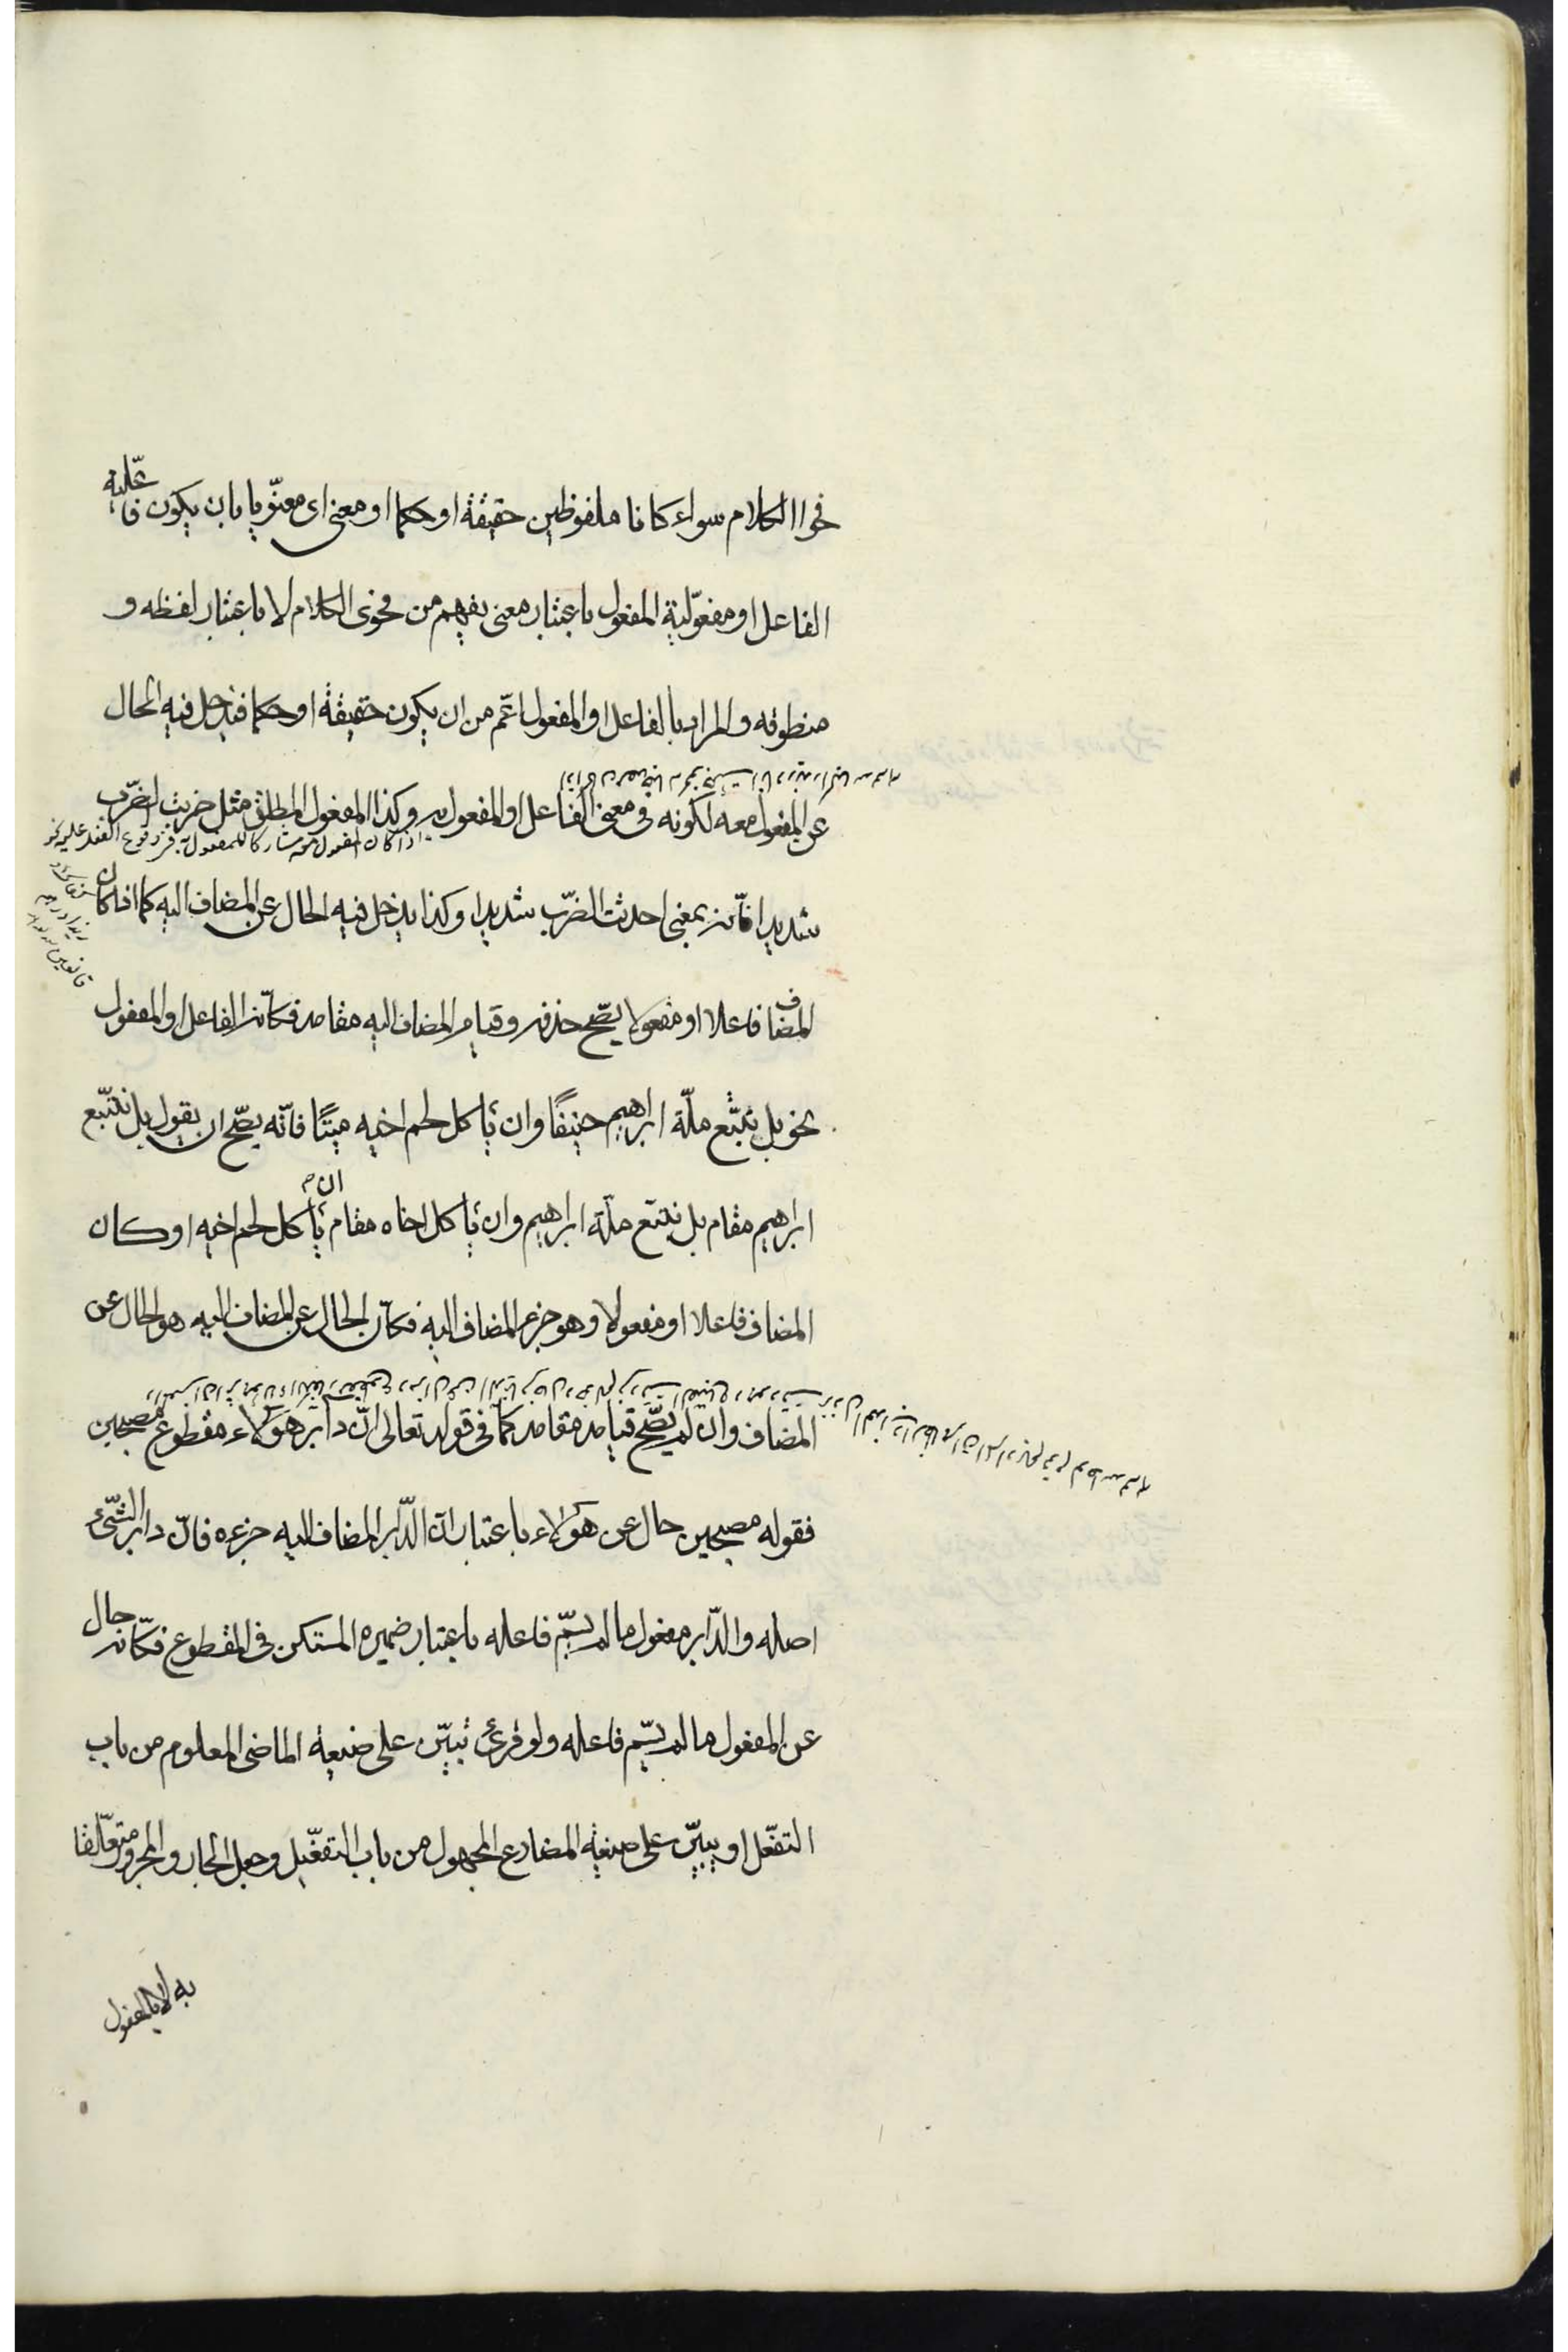 فحوا الكلام سواء كانا ملفوظين حقيقة او حكما او معنى اى معنويا بان يكون فاعلية
الفاعل او مفعولية المفعول باعتبار معنى يفهم من فحوى الكلام لا باعتبار لفظه و
منطوقه والمراد بالفاعل او المفعول اعم من ان يكون حقيقة او حكما فيدخل فيه الحال
عن المفعول معه لكونه فى معنى الفاعل او المفعول به وكذا المفعول المطلق مثل ضربت الضرب
اذا كان المفعول معه مشاركا للمفعول به فى وقوع الفعل عليه نحو
شديدا فانه بمعنى احدثت الضرب شديدا وكذا يدخل فيه الحال عن المضاف اليه كما اذا كان
المضاف فاعلا او مفعولا يصح حذفه وقيام المضاف اليه مقامه فكانه الفاعل او المفعول
نحو بل نتبع ملّة ابراهيم حنيفًا وان ياكل لحم اخيه ميتًا فانّه يصحّ ان يقول بل نتبّع
ابراهيم مقام بل نتبع ملّة ابراهيم وان ياكل اخاه مقام ان ياكل لحم اخيه او كان
المضاف فاعلا او مفعولا وهو جزء المضاف اليه فكانّ الحال عن المضاف اليه هو الحال عن
المضاف وان لم يصّح قيامه مقامه كما فى قوله تعالى انّ دابر هؤلاء مقطوع مصبحين
فقوله مصبحين حال عن هؤلاء باعتبار انّ الدّابر المضاف اليه جزءه فانّ دابر الشّىء
اصله والدّابر مفعول ما لم يسمّ فاعله باعتبار ضميره المستكن فى المقطوع فكانّه حال
عن المفعول ما لم يسّم فاعله ولو قرئ تبيّن على صيغة الماضى المعلوم من باب
التفعّل او يبيّن على صيغة المضارع المجهول من باب التفعّيل وجعل الجار والمجرور متعلّقا
به لا بالمفعول